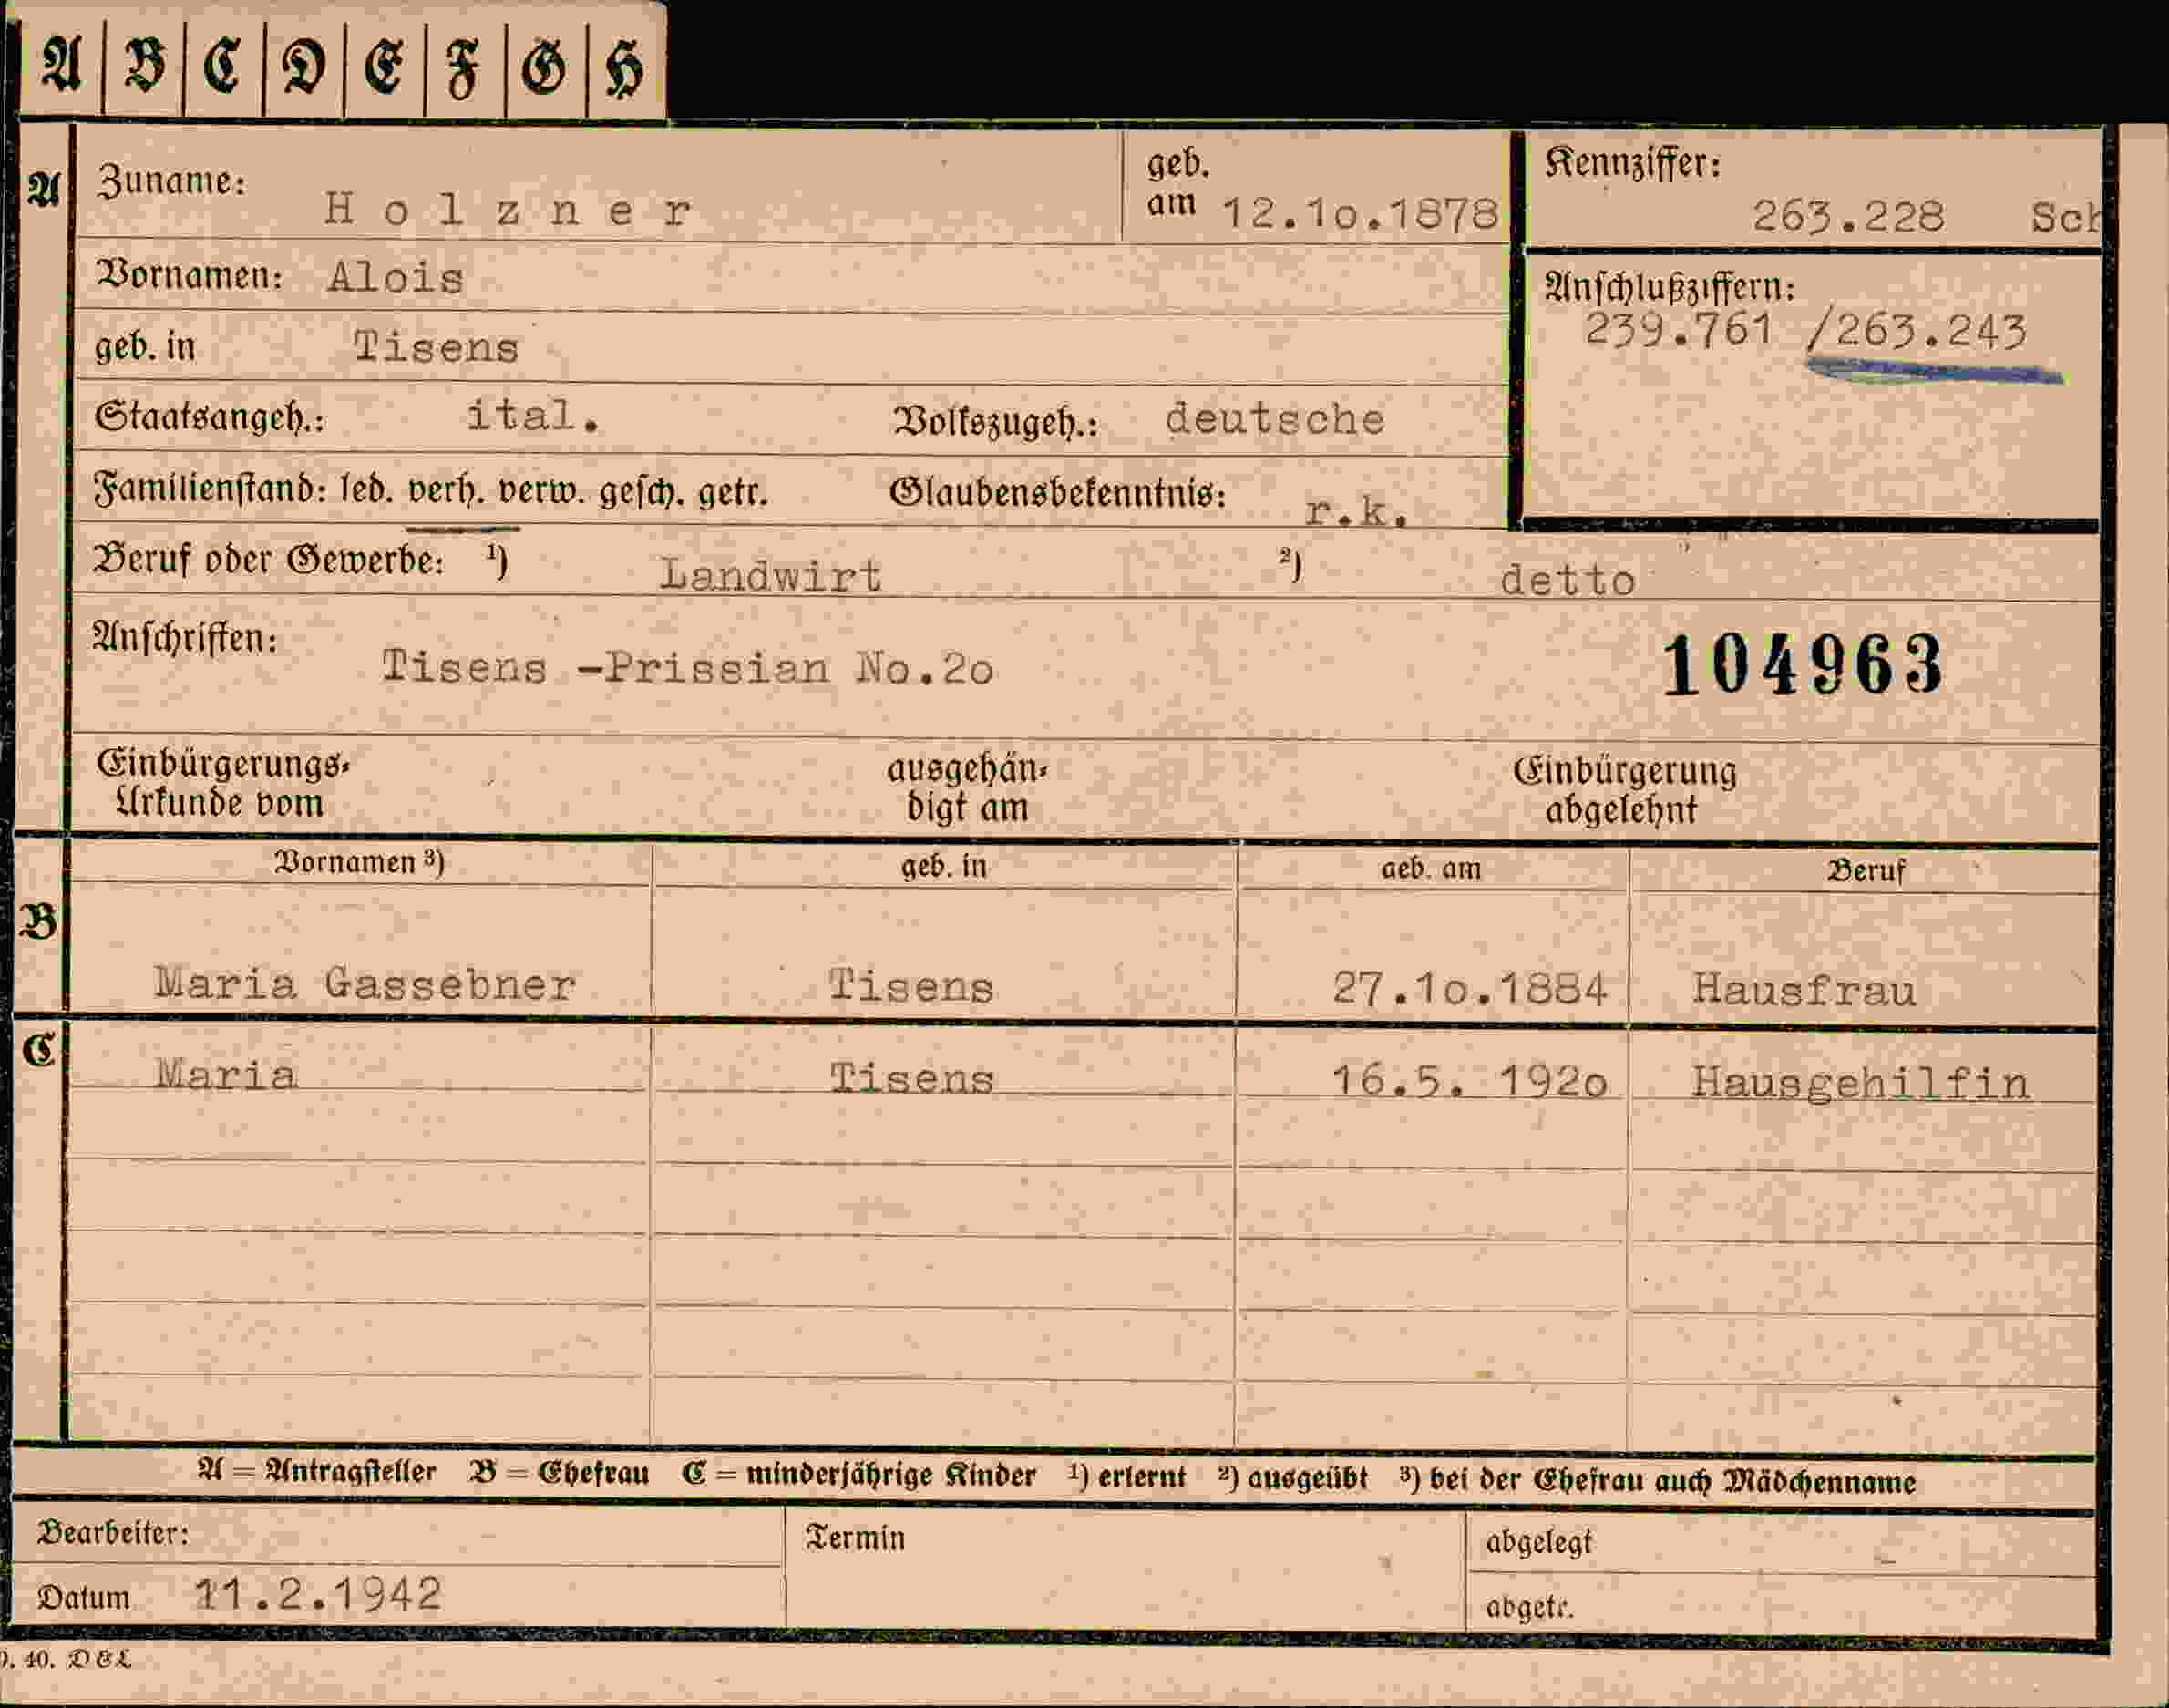 A B C D E F G H
A Zuname: Holzner geb. am 12.1o.1878 Kennziffer: 263.228 Sch
Vornamen: Alois Anschlußziffern:
239.761 /263.243
geb. in Tisens
Staatsangeh.: ital. Volkszugeh.: deutsche
Familienstand: led. verh. verw. gesch. getr. Glaubensbekenntnis: r.k.
Beruf oder Gewerbe: ¹) Landwirt ²) detto
Anschriften: Tisens -Prissian No.2o 104963
Einbürgerungs- ausgehän- Einbürgerung
Urkunde vom digt am abgelehnt
Vornamen ³) geb. in geb. am Beruf
B Maria Gassebner Tisens 27.1o.1884 Hausfrau
C Maria Tisens 16.5. 192o Hausgehilfin
A = Antragsteller B = Ehefrau C = minderjährige Kinder ¹) erlernt ²) ausgeübt ³) bei der Ehefrau auch Mädchenname
Bearbeiter: Termin abgelegt
Datum 11.2.1942 abgetr.
. 40. D&L